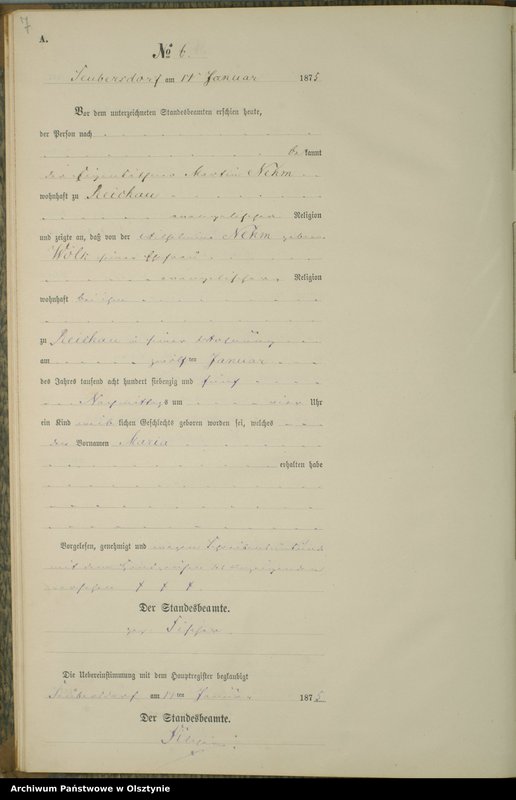 7
A.
№ 6.
Seubersdorf am 14 Januar 1875
Vor dem unterzeichneten Standesbeamten erschien heute,
der Person nach
be kannt
der Eigenkäthner Martin Nehm
wohnhaft zu Reichau
evangelischer Religion
und zeigte an, daß von der Wilhelmine Nehm geboren
Wölk seiner Ehefrau
evangelischer Religion
wohnhaft bei ihm
zu Reichau in seiner Wohnung
am zwölf ten Januar
des Jahres tausend acht hundert siebenzig und fünf
Nachmittags um vier Uhr
ein Kind weib lichen Geschlechts geboren worden sei, welches
den Vornamen Maria
erhalten habe
Vorgelesen, genehmigt und wegen Schreibensunkunde
mit dem Handzeichen des Anzeigenden
versehen + + +
Der Standesbeamte.
gez.
Die Uebereinstimmung mit dem Hauptregister beglaubigt
Seubersdorf am 14 ten Januar 1875
Der Standesbeamte.
Archiwum Państwowe w Olsztynie